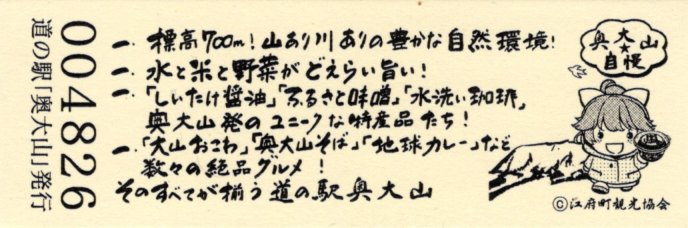 一、標高700m！山あり川ありの豊かな自然環境！
一、水と米と野菜がどえらい旨い！
一、「しいたけ醤油」「ふるさと味噌」「水洗い珈琲」
奥大山発のユニークな特産品たち！
一、「大山おこわ」「奥大山そば」「地球カレー」など
数々の絶品グルメ！
そのすべてが揃う道の駅奥大山
奥大山
★
自慢
©江府町観光協会
004826
道の駅「奥大山」発行